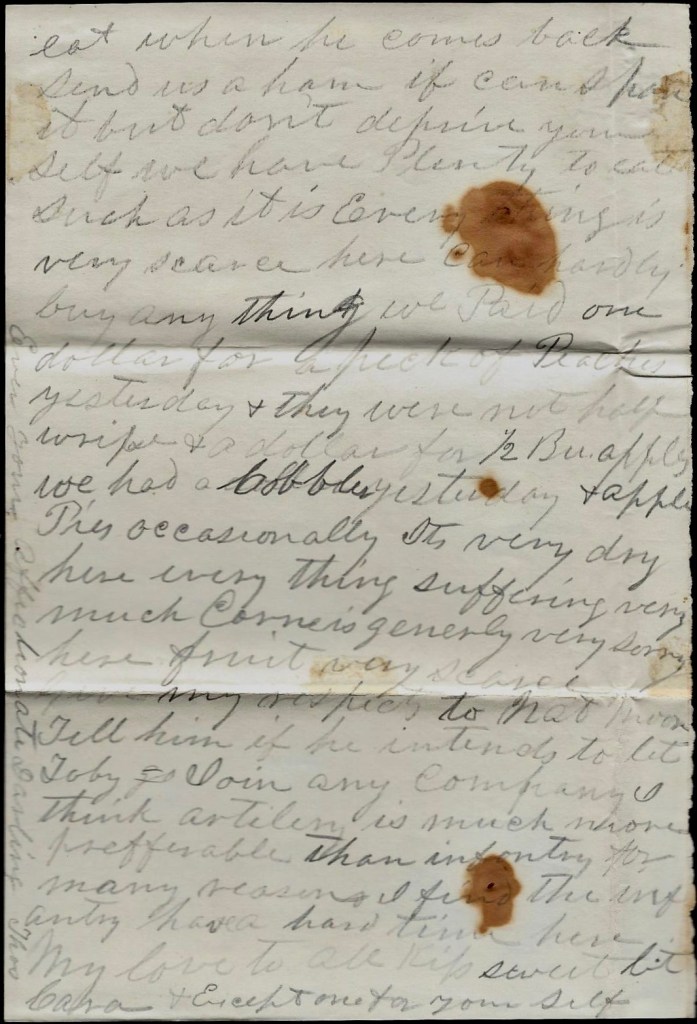 eat when he comes back
send us a ham if can spare
it but dont deprive your
self we have Plenty to eat
such as it is Every thing is
very scarce here Can hardly
buy any thing we Paid one
dollar for a peck of Peaches
yesterday & they were not half
wripe & a dollar for 1/2 Bu. apples
we had a Cobbler yesterday & apple
Pies occasionally Its very dry
here every thing suffering very
much Corn is generly very sorry
here fruit very scarce
Give my respects to Nat Moon
Tell him if he intends to let
Toby Join any Company I
think artilery is much more
prefferable than infantry for
many reasons I find the inf
antry have a hard time here
My love to all Kiss sweet lit
Cara & Except one for your self
Ever your affectionate Darling Thos